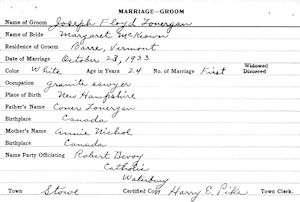 MARRIAGE—GROOM
Name of Groom Joseph Floyd Lonergan
Name of Bride Margaret McKeown
Residence of Groom Barre, Vermont
Date of Marriage October 23, 1933
Color White Age in Years 24 No. of Marriage First Widowed Divorced
Occupation granite sawyer
Place of Birth New Hampshire
Father's Name Comer Lonergan
Birthplace Canada
Mother's Name Annie Nichol
Birthplace Canada
Name Party Officiating Robert Devoy
Catholic
Waterbury
Town Stowe Certified Copy Harry E. Pike Town Clerk.